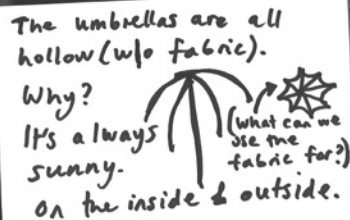 The umbrellas are all
hollow (w/o fabric).
Why?
It's always
sunny.
(What can we
use the
fabric for?)
on the inside & outside.